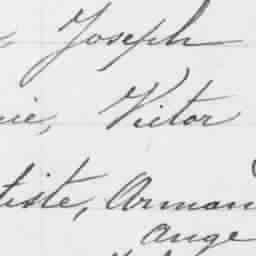 Joseph
ie, Victor
tiste, Arman
ange